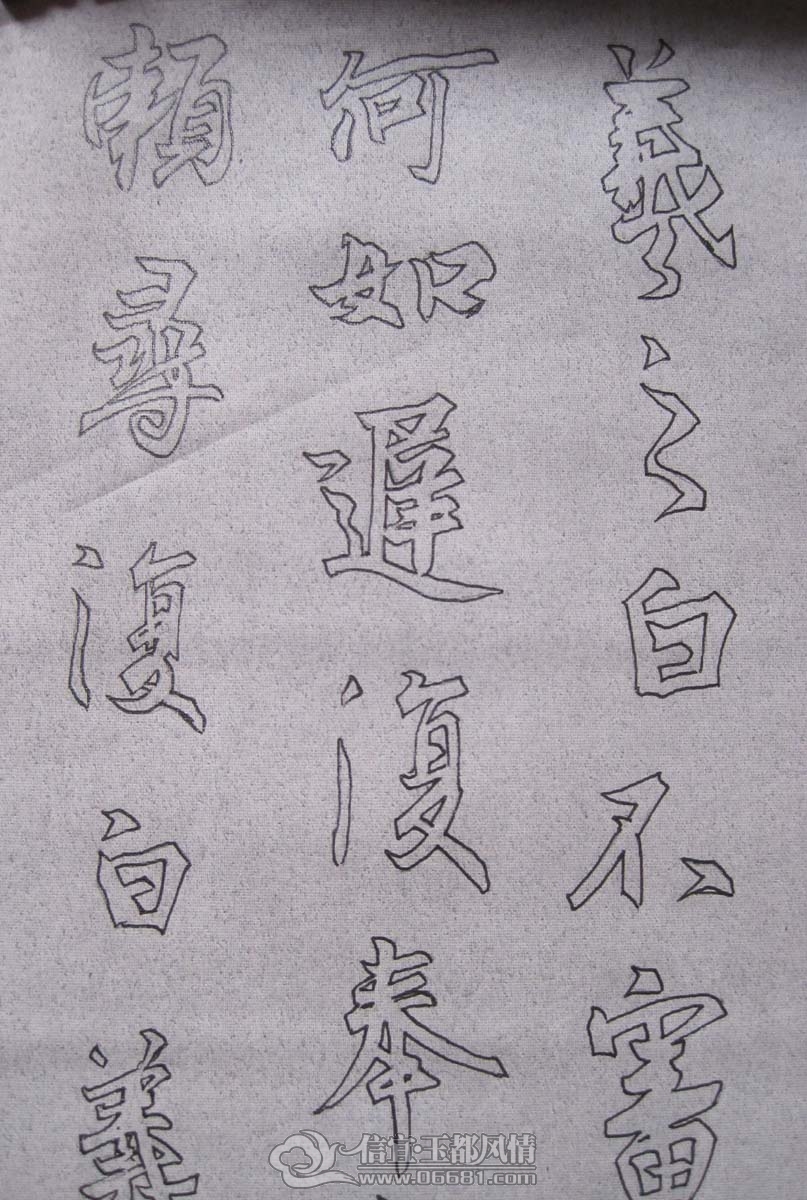 羲之白不審
何如遲復奉
賴尋復白羲
信宜·玉都风情
www.06681.com